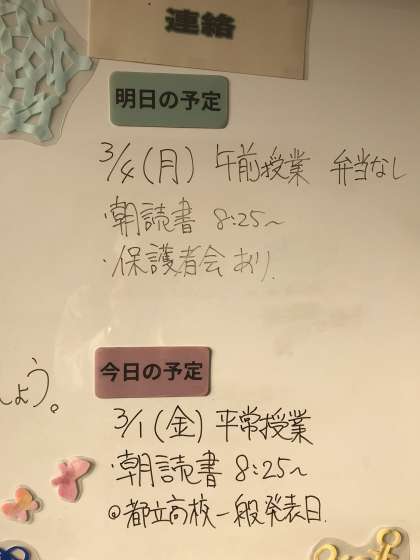 連絡
明日の予定
3/4(月) 午前授業 弁当なし
・朝読書 8:25~
・保護者会あり.
今日の予定
しょう。
3/1(金) 平常授業
・朝読書 8:25~
◎都立高校一般発表日.